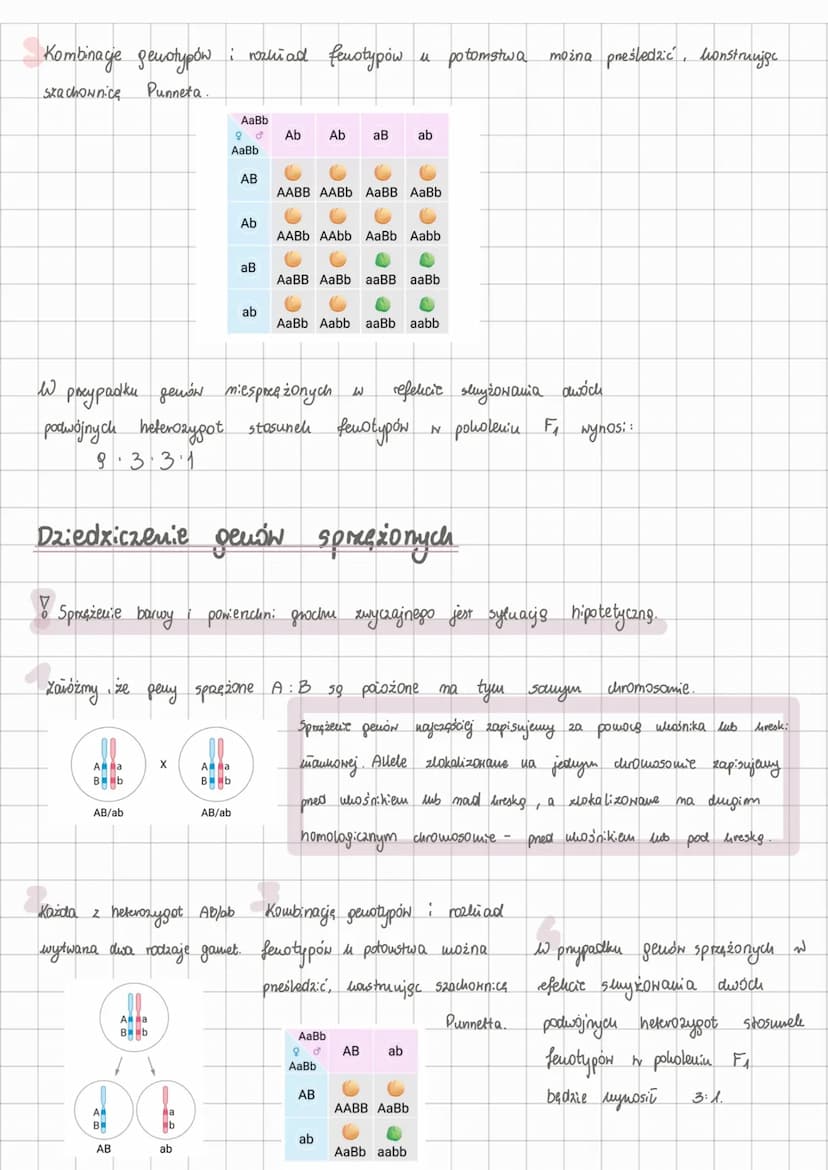 3 Kombinacje genotypów i rozkład fenotypów u potomstwa można prześledzić, konstruując
szachownicę Punneta.
AaBb
♀ ♂ Ab Ab aB ab
AaBb
AB
AABB AABb AaBB AaBb
Ab
AABb AAbb AaBb Aabb
aB
AaBB AaBb aaBB aaBb
ab
AaBb Aabb aaBb aabb
W przypadku genów niesprzężonych w efekcie skrzyżowania dwóch
podwójnych heterozygot stosunek fenotypów w pokoleniu F1 wynosi:
9:3:3:1
Dziedziczenie genów sprzężonych
! Sprzężenie barwy i powierzchni grochu zwyczajnego jest sytuacją hipotetyczną.
1 Załóżmy, że geny sprzężone A i B są położone na tym samym chromosomie.
Sprzężenie genów najczęściej zapisujemy za pomocą ukośnika lub kreski
ułamkowej. Allele zlokalizowane na jednym chromosomie zapisujemy
przed ukośnikiem lub nad kreską, a zlokalizowane na drugim
homologicznym chromosomie - przed ukośnikiem lub pod kreską.
A a x A a
B b B b
AB/ab AB/ab
2 Każda z heterozygot AB/ab
wytwarza dwa rodzaje gamet.
A a
B b
A a
B b
AB ab
3 Kombinację genotypów i rozkład
fenotypów u potomstwa można
prześledzić, konstruując szachownicę
Punnetta.
AaBb
♀ ♂ AB ab
AaBb
AB
AABB AaBb
ab
AaBb aabb
4
W przypadku genów sprzężonych w
efekcie skrzyżowania dwóch
podwójnych heterozygot stosunek
fenotypów w pokoleniu F1
będzie wynosił 3:1.